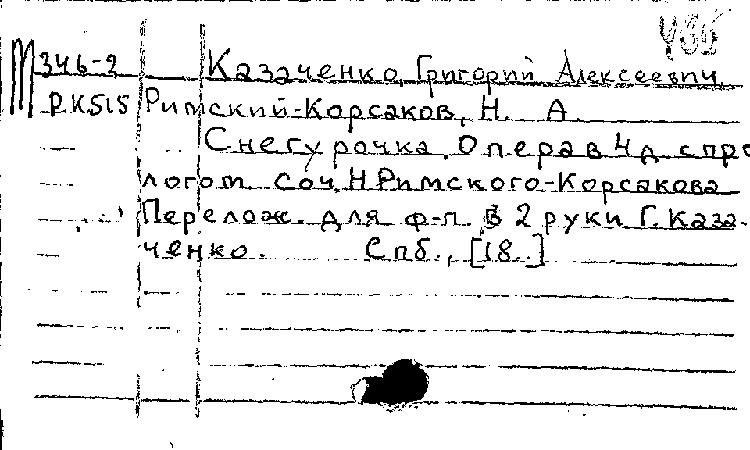 435
М 346-2 Казаченко, Григорий Алексеевич
Р.К515 Римский-Корсаков, Н. А.
Снегурочка. Опера в 4 д. с про
логом. Соч. Н Римского-Корсакова
Перелож. для ф-п. в 2 руки Г. Каза-
ченко. Спб., [18..]